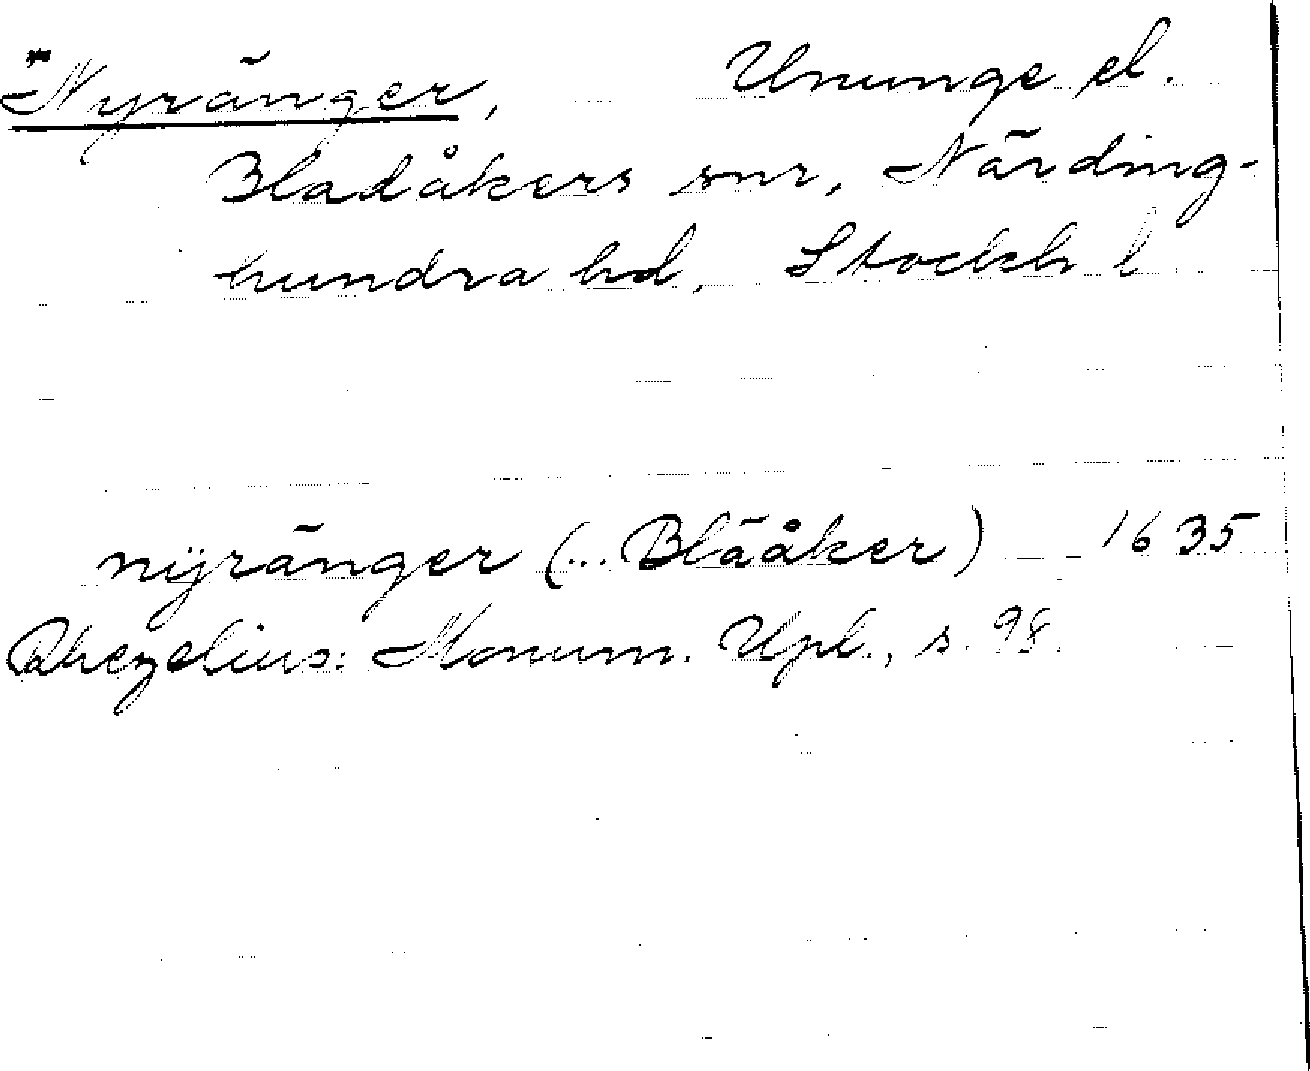 *Nyränger, Ununge el.
Bladåkers snr, Närding-
hundra hd, Stockh l
nÿränger (... Blääker) 1635
Rhezelius: Monum. Upl., s. 98.